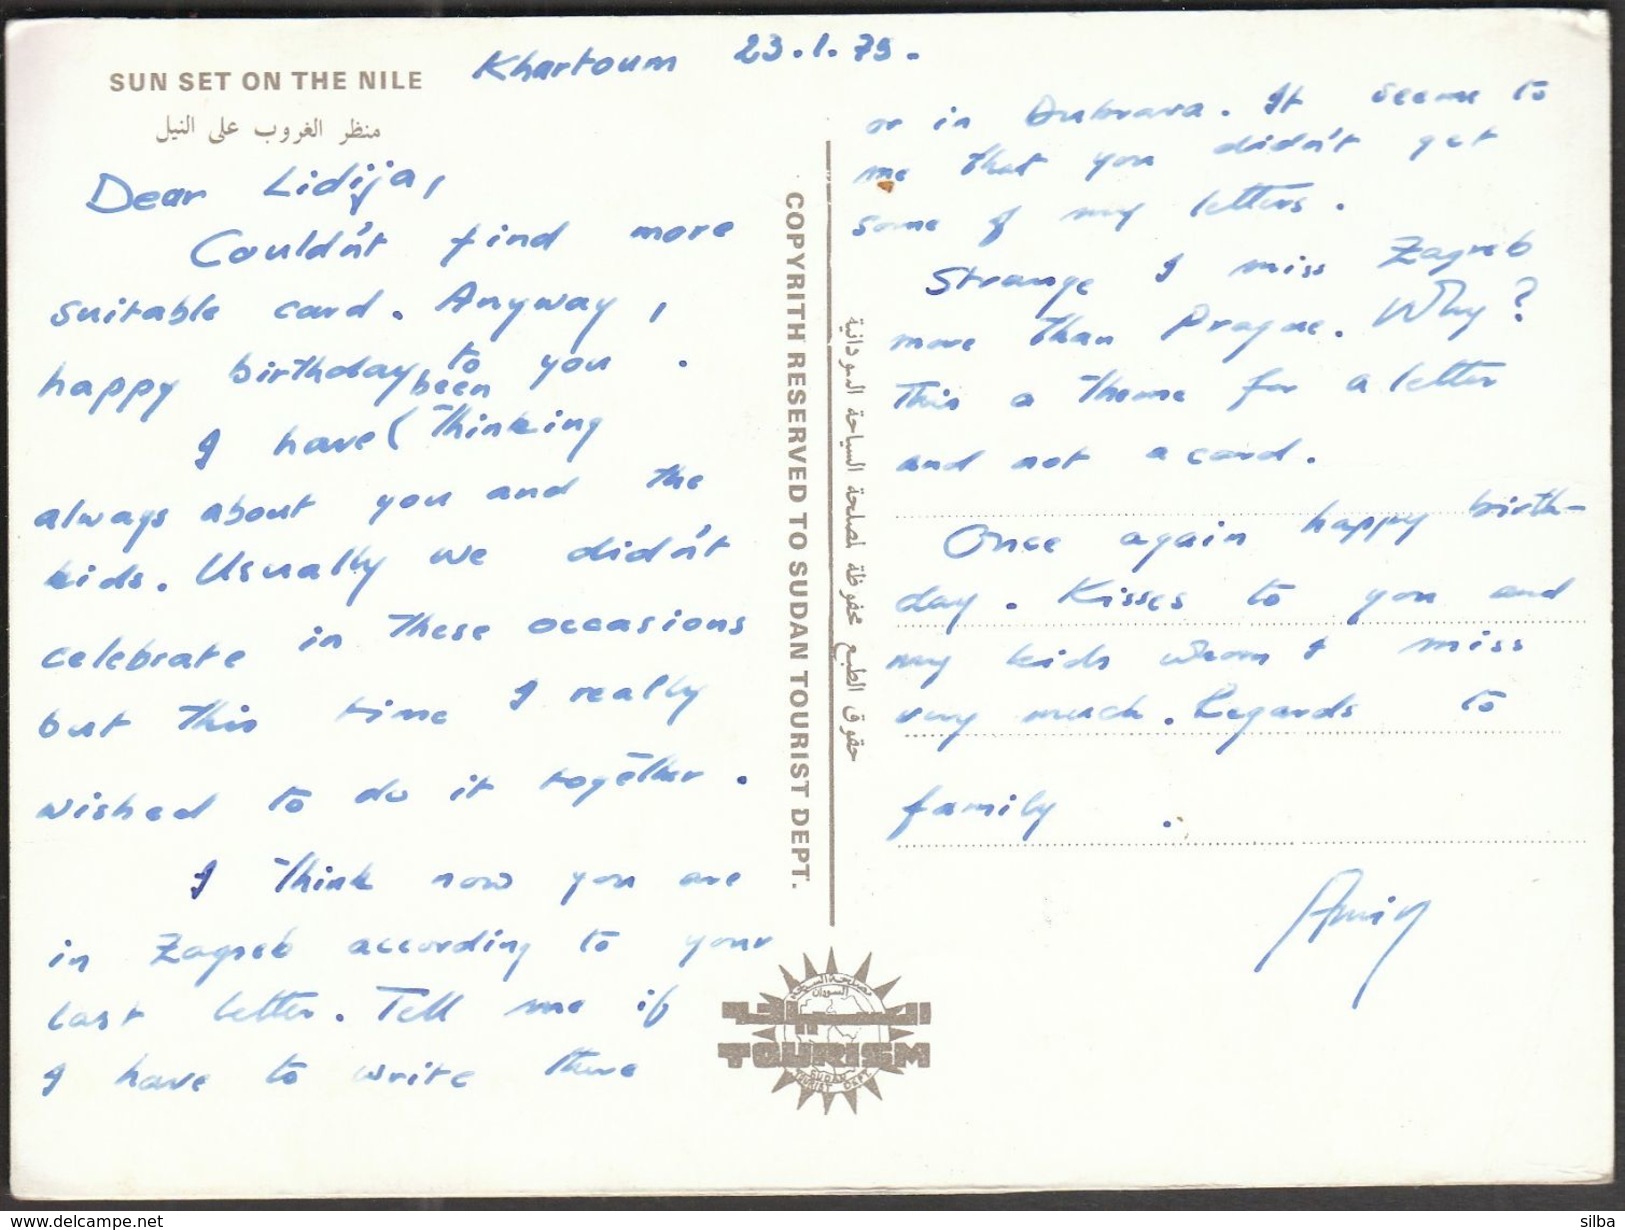 SUN SET ON THE NILE
منظر الغروب على النيل
Khartoum 23.1.79.
Dear Lidija,
Couldn't find more
suitable card. Anyway,
happy birthday to you.
I have been thinking
always about you and the
kids. Usually we didn't
celebrate in these occasions
but this time I really
wished to do it together.
I think now you are
in Zagreb according to your
last letter. Tell me if
I have to write there
or in Dubrava. It seems to
me that you didn't get
some of my letters.
Strange I miss Zagreb
more than Prague. Why?
This a theme for a letter
and not a card.
Once again happy birth-
day. Kisses to you and
my kids whom I miss
very much. Regards to
family.
Amin
COPYRITH RESERVED TO SUDAN TOURIST DEPT.
حقوق الطبع محفوظة لمصلحة السياحة السودانية
مصلحة السياحة
السودان
السياحة
TOURISM
SUDAN
TOURIST DEPT.
silba